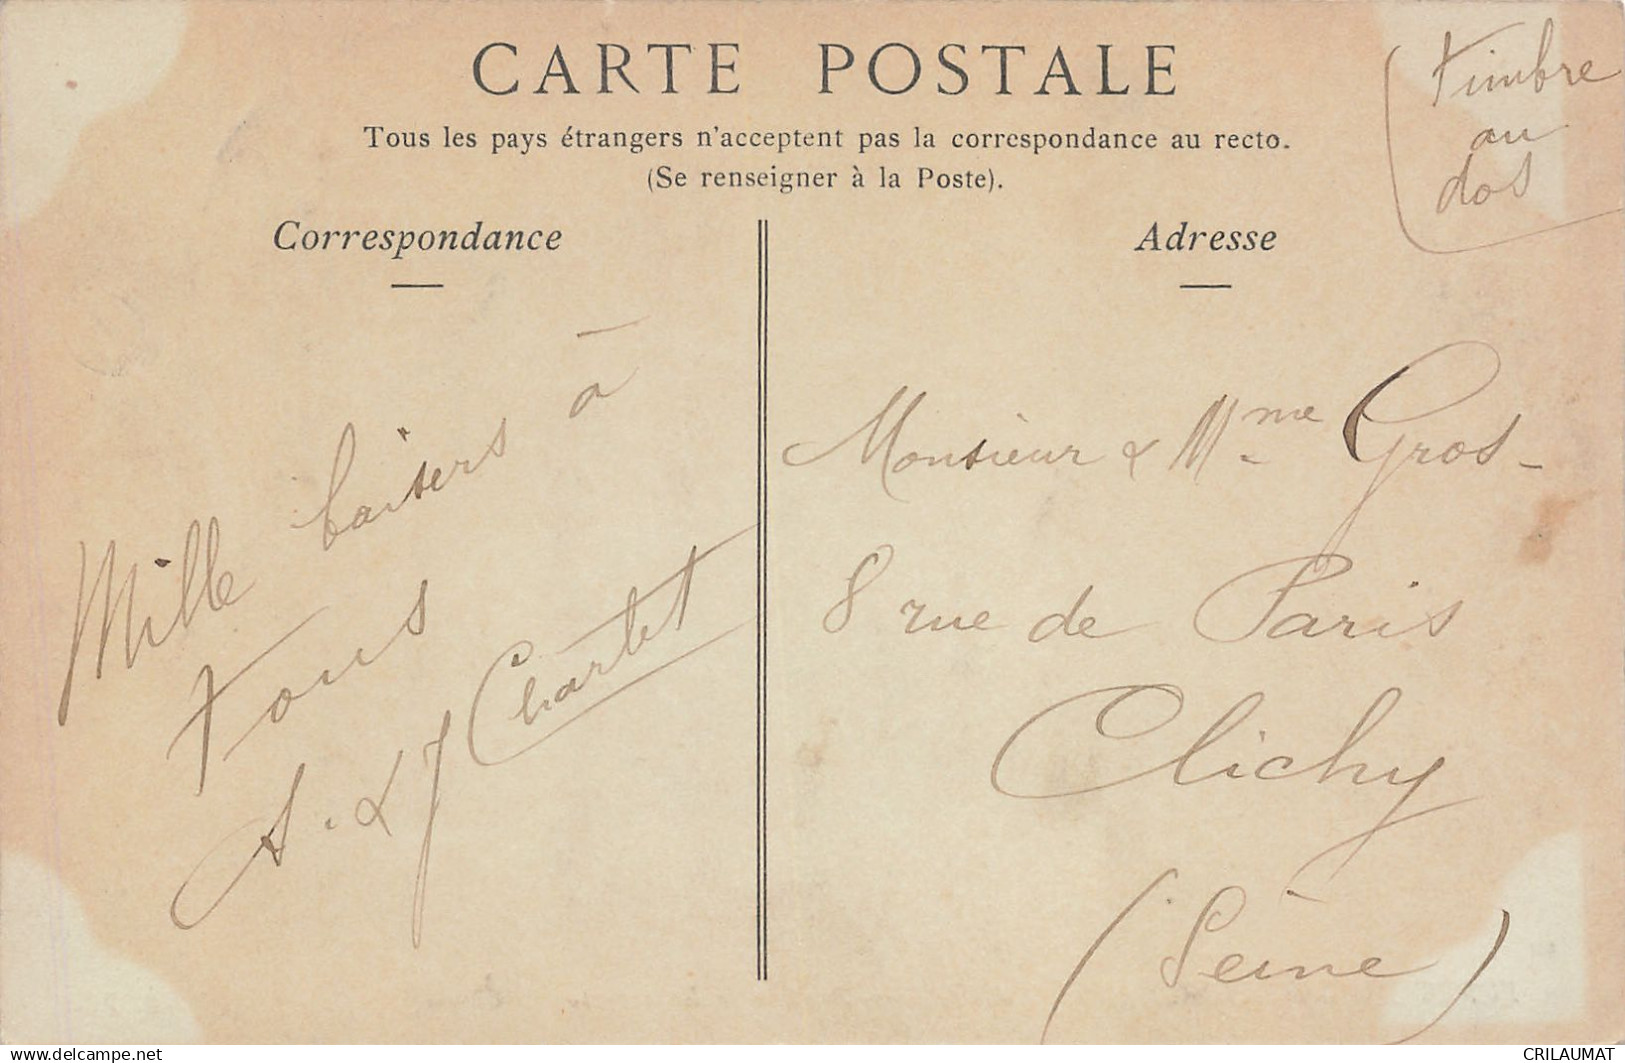 CARTE POSTALE
Tous les pays étrangers n'acceptent pas la correspondance au recto.
(Se renseigner à la Poste).
Timbre
au
dos
Correspondance
Mille baisers à
tous
A. & J Charlet
Adresse
Monsieur & Mme Gros-
8 rue de Paris
Clichy
(Seine)
www.delcampe.net
CRILAUMAT